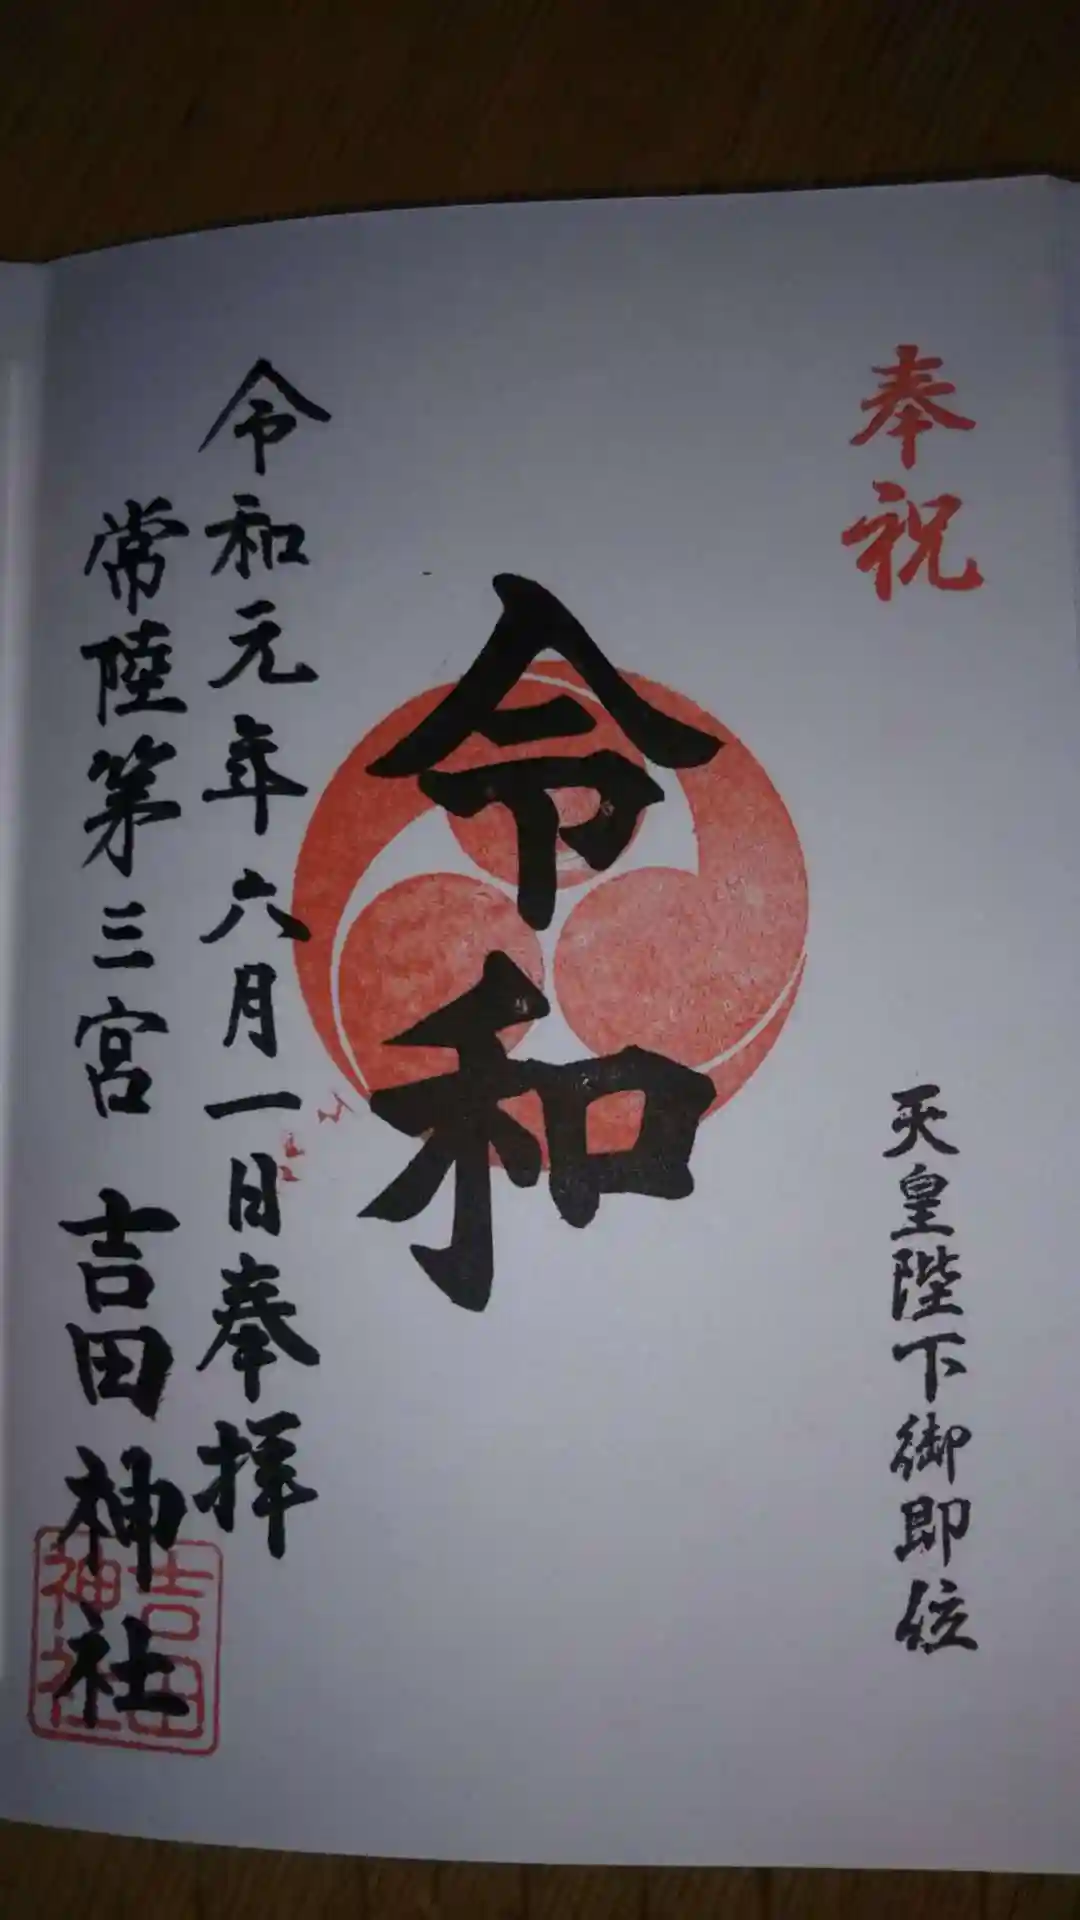 奉祝
天皇陛下御即位
令和
令和元年六月一日奉拝
常陸第三宮 吉田神社
吉田
神社